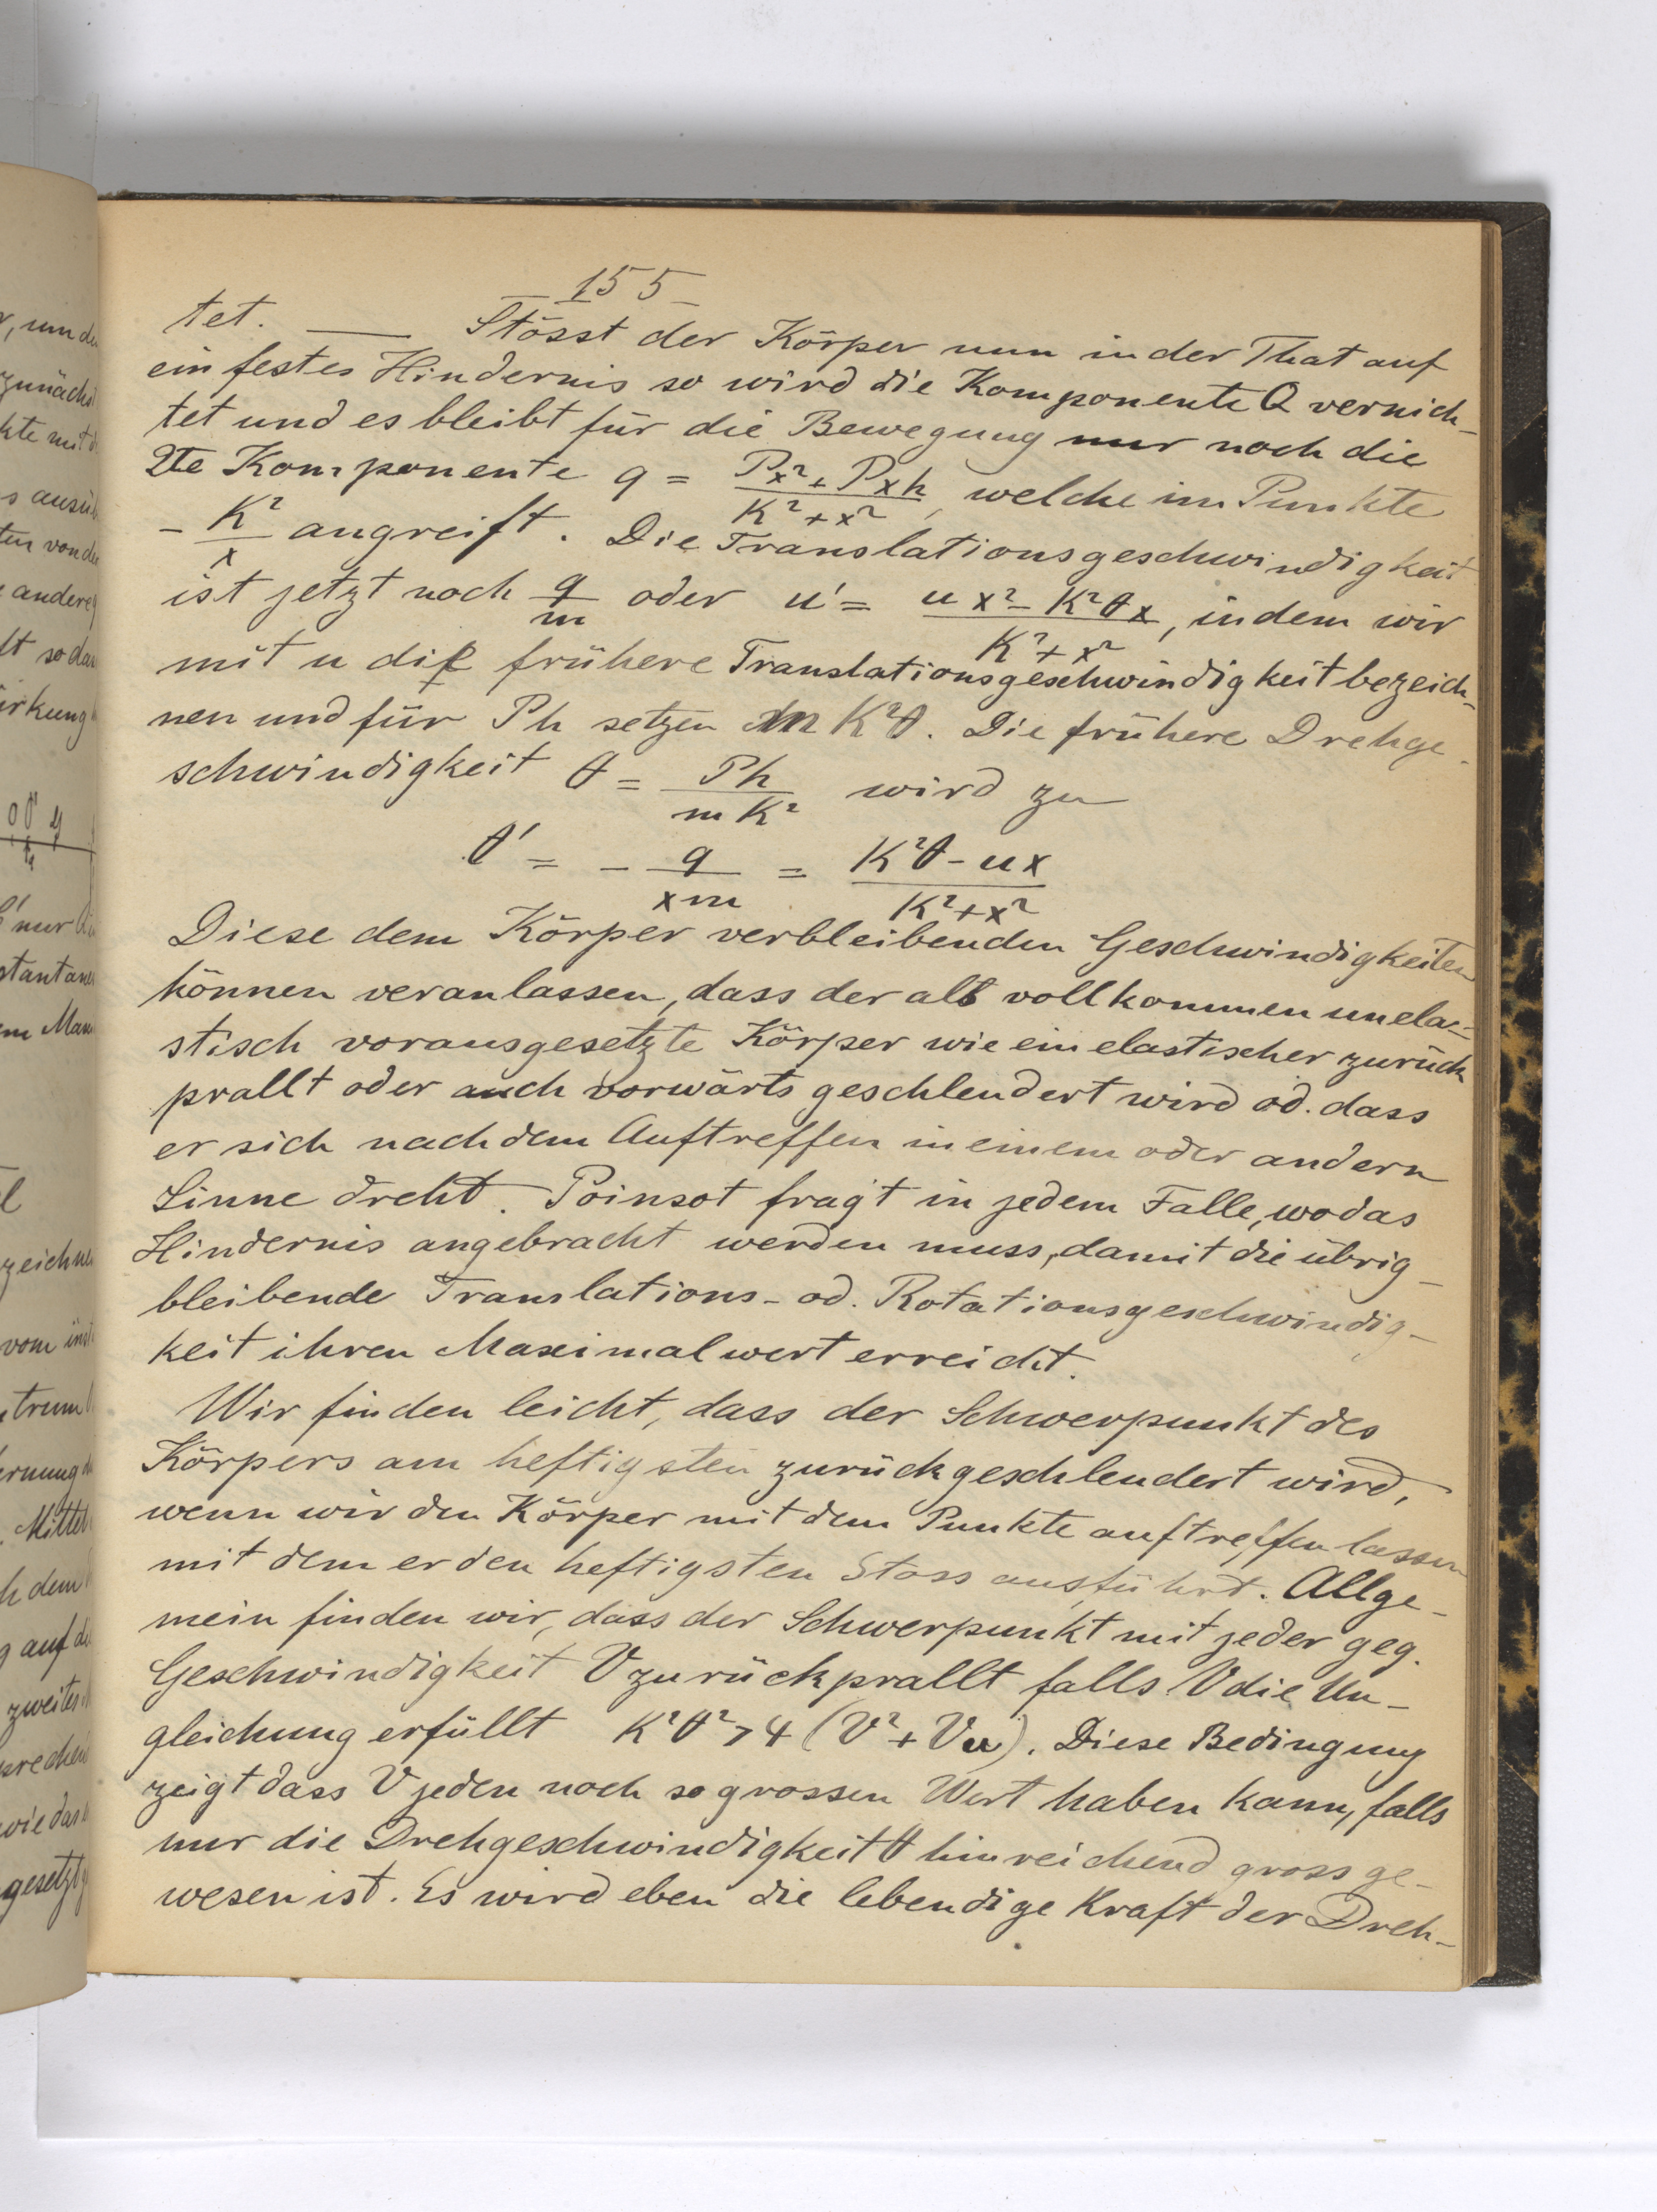 155
tet. — Stösst der Körper nun in der That auf
ein festes Hindernis so wird die Komponente Q vernich-
tet und es bleibt für die Bewegung nur noch die
2te Komponente q = (Px² + Pxh)/(K² + x²), welche im Punkte
- K²/x angreift. Die Translationsgeschwindigkeit
ist jetzt noch q/m oder u' = (ux² - K²θx)/(K² + x²), indem wir
mit u die frühere Translationsgeschwindigkeit bezeich-
nen und für Ph setzen m K²θ. Die frühere Drehge-
schwindigkeit θ = Ph/(mK²) wird zu
θ' = - q/(xm) = (K²θ - ux)/(K² + x²)
Diese dem Körper verbleibenden Geschwindigkeiten
können veranlassen, dass der als vollkommen unela-
stisch vorausgesetzte Körper wie ein elastischer zurück
prallt oder auch vorwärts geschleudert wird od. dass
er sich nach dem Auftreffen in einem oder andern
Sinne dreht. Poinsot fragt in jedem Falle, wo das
Hindernis angebracht werden muss, damit die übrig-
bleibende Translations- od. Rotationsgeschwindig-
keit ihren Maximalwert erreicht.
Wir finden leicht, dass der Schwerpunkt des
Körpers am heftigsten zurückgeschleudert wird,
wenn wir den Körper mit dem Punkte auftreffen lassen
mit dem er den heftigsten Stoss ausführt. Allge-
mein finden wir, dass der Schwerpunkt mit jeder geg.
Geschwindigkeit V zurückprallt falls V die Un-
gleichung erfüllt K²θ² > 4 (V² + Vu). Diese Bedingung
zeigt dass V jeden noch so grossen Wert haben kann, falls
nur die Drehgeschwindigkeit θ hinreichend gross ge-
wesen ist. Es wird eben die lebendige Kraft der Dreh-